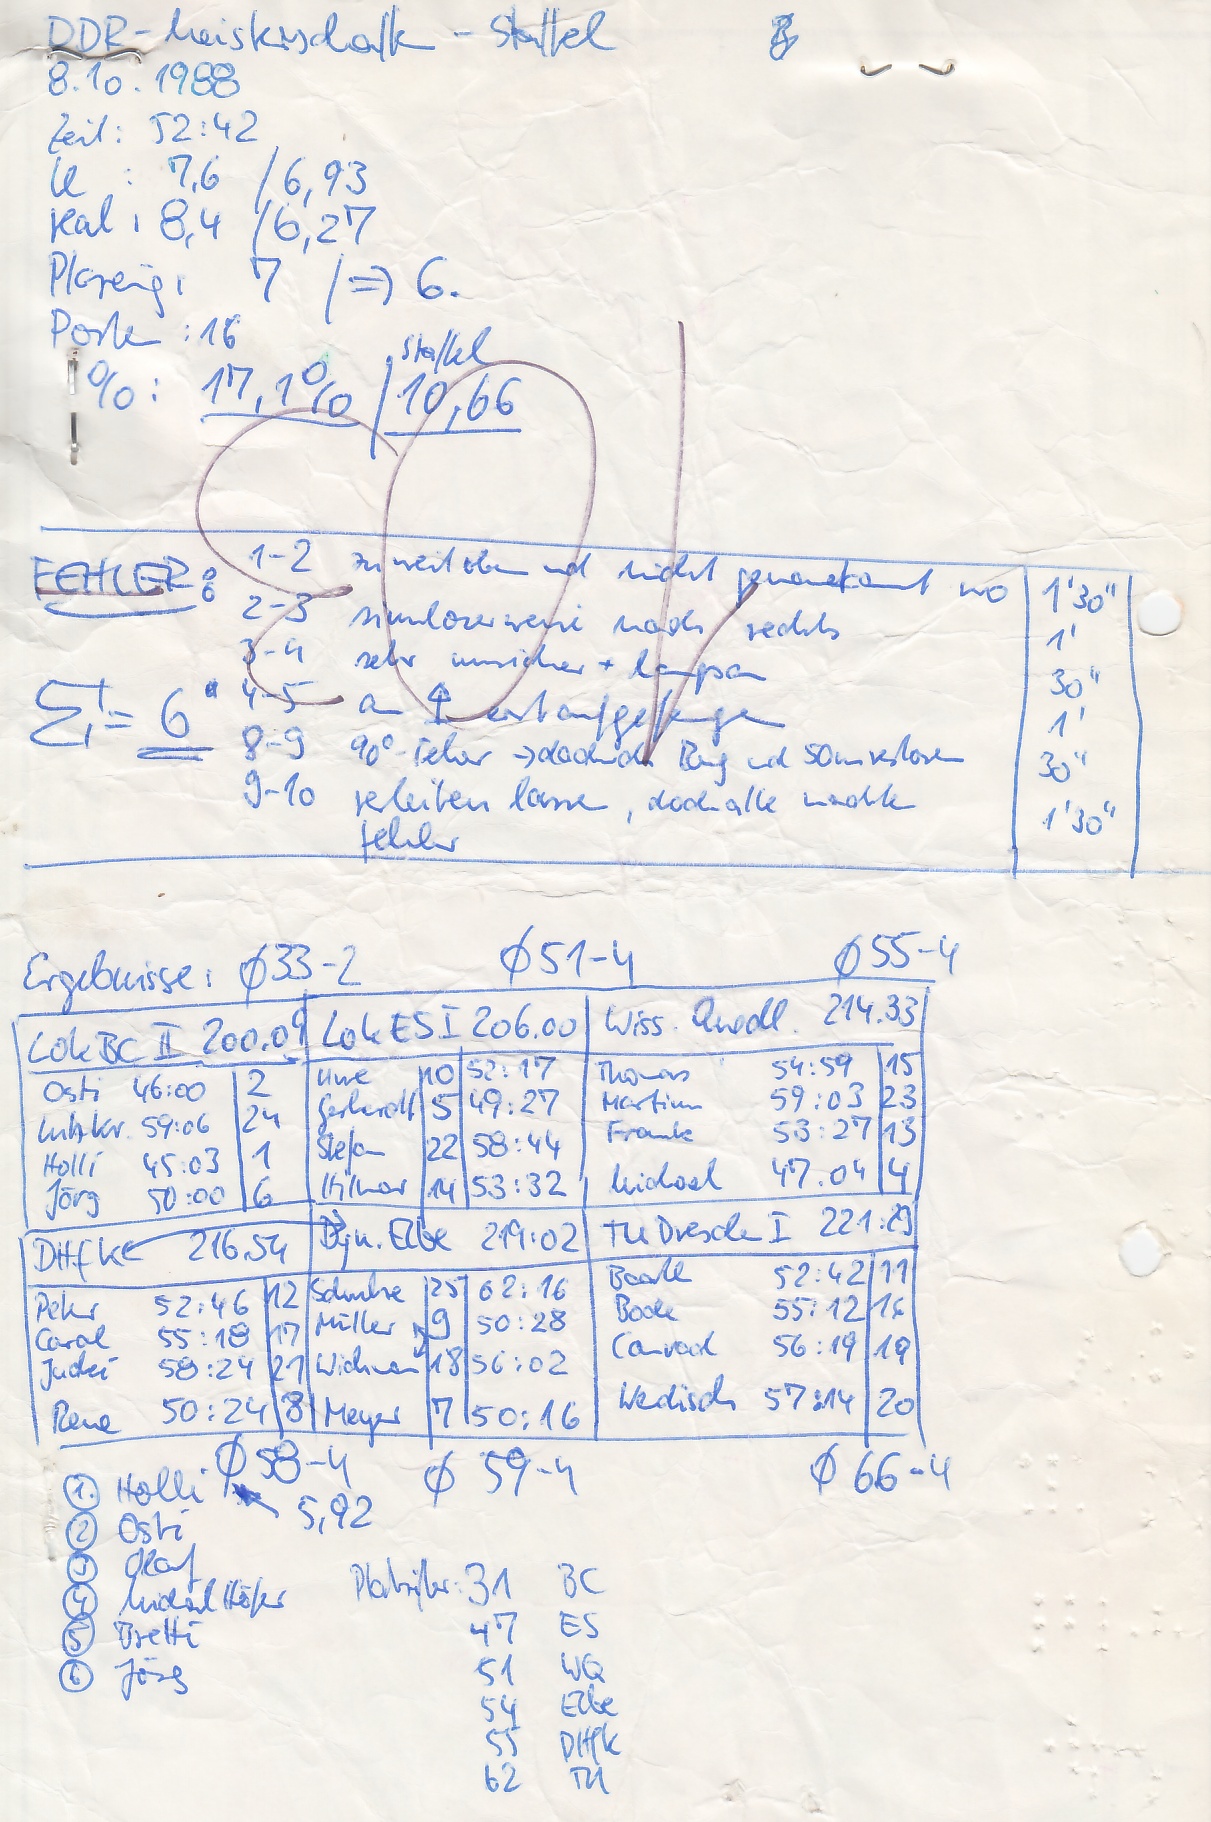 DDR-Meisterschaft - Staffel
8.10.1988
Zeit: 52:42
: 7,6 / 6,93
real: 8,4 / 6,27
Platzierg: 7 / => 6.
Posten: 16
Staffel
%: 17,1% / 10,66
FEHLER:
1-2 zu weit oben und nicht genau erkannt wo 1'30"
2-3 sinnloserweise nach rechts 1'
3-4 sehr unsicher + langsam 30"
4-5 an ↑ erst aufgefangen 1'
8-9 90°-Fehler → dadurch Berg und 50m verloren 30"
9-10 lassen, machte 1'30"
Fehler
Σ = 6'
Ergebnisse: Ø33-2 Ø51-4 Ø55-4
Lok BC II 200.09
Osti 46:00 2
Lutz Kr. 59:06 24
Holli 45:03 1
Jörg 50:00 6
Lok ES I 206.00
Uwe 10 52:17
Gerhardt 5 49:27
Stefan 22 58:44
Hilmar 14 53:32
Wiss. Quedl. 214.33
Thomas 54:59 15
Martin 59:03 23
Frank 53:27 13
Michael 47.04 4
DHfK 216.54
Peter 52:46 12
Carol 55:18 17
58:24 21
Rene 50:24 8
Dyn. Elbe 219:02
Schulze 25 62:16
Müller 9 50:28
Wichman 18 56:02
Meyer 7 50:16
TU Dresden I 221:29
52:42 11
Bode 55:12 16
Conrad 56:19 19
57:14 20
Ø58-4 Ø 59-4 Ø 66-4
5,92
1. Holli
2 Osti
3 Olaf
4 Michael Höfer
5 Bretti
6 Jörg
Platzziffer: 31 BC
47 ES
51 WQ
54 Elbe
55 DHfK
62 TU